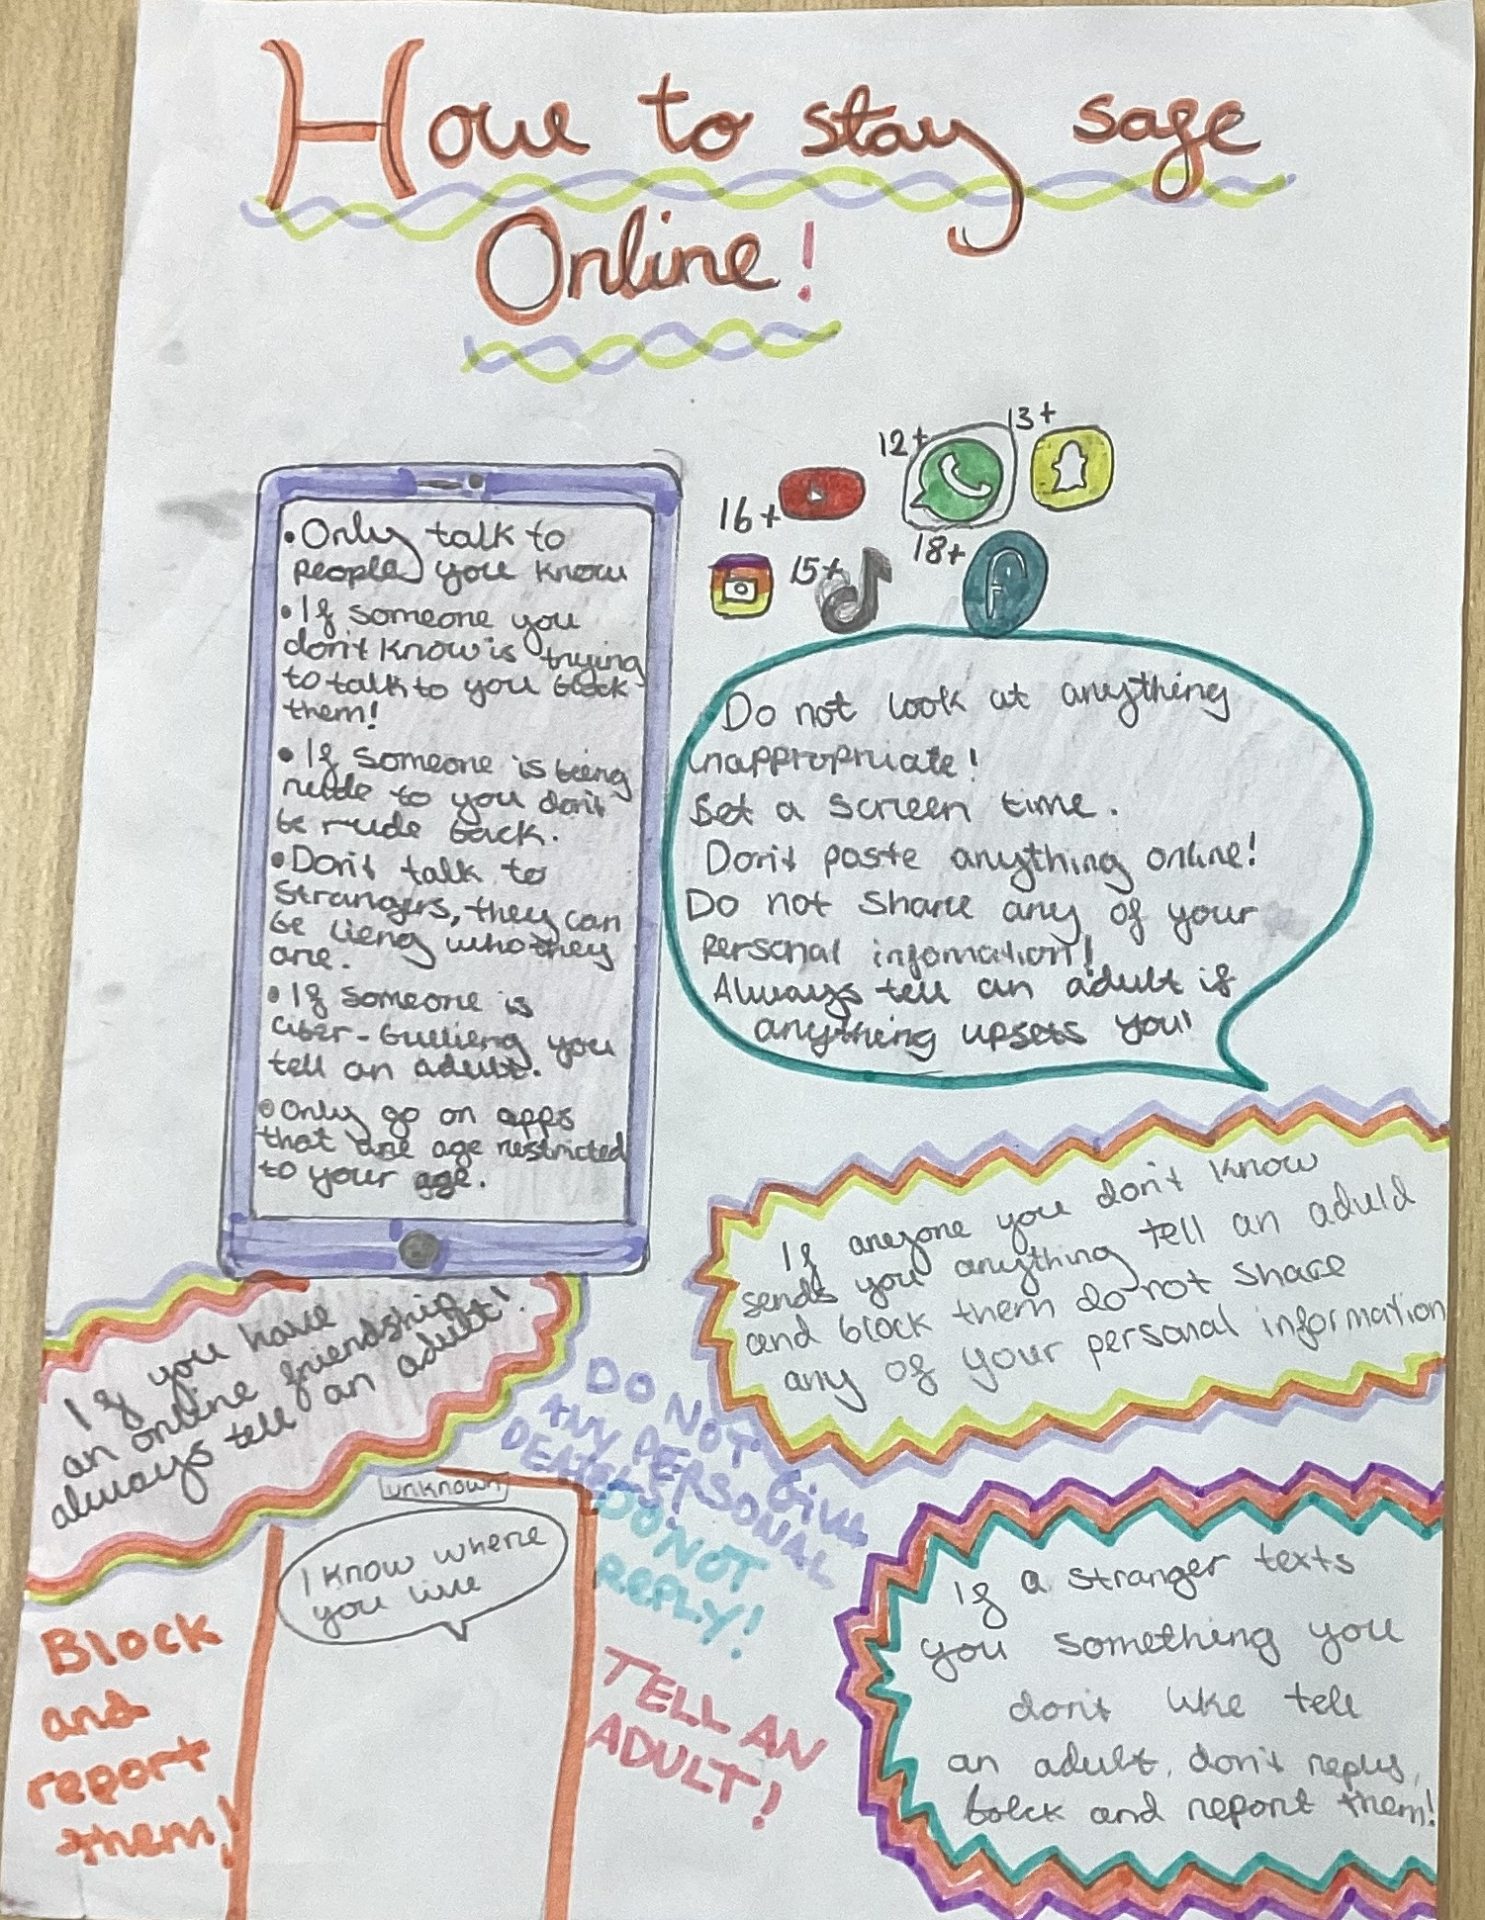 How to stay safe
Online!
12+
13+
16+
15+
18+
• Only talk to
people you know
• If someone you
don't know is trying
to talk to you block
them!
• If someone is being
rude to you don't
be rude back.
• Don't talk to
strangers, they can
be lieng who they
are.
• If someone is
ciber-bullieng you
tell an adult.
• Only go on apps
that are age restricted
to your age.
Do not look at anything
inappropriate!
Set a screen time.
Don't poste anything online!
Do not share any of your
personal infomation!
Always tell an adult if
anything upsets you!
If anyone you don't know
sends you anything tell an aduld
and block them do not share
any of your personal information
If you have
an online friendship
always tell an adult!
DO NOT GIVE
ANY PERSONAL
DO NOT
REPLY!
TELL AN
ADULT!
unknown
I know where
you live
Block
and
report
them!
If a stranger texts
you something you
don't like tell
an adult, don't reply,
bolck and report them!